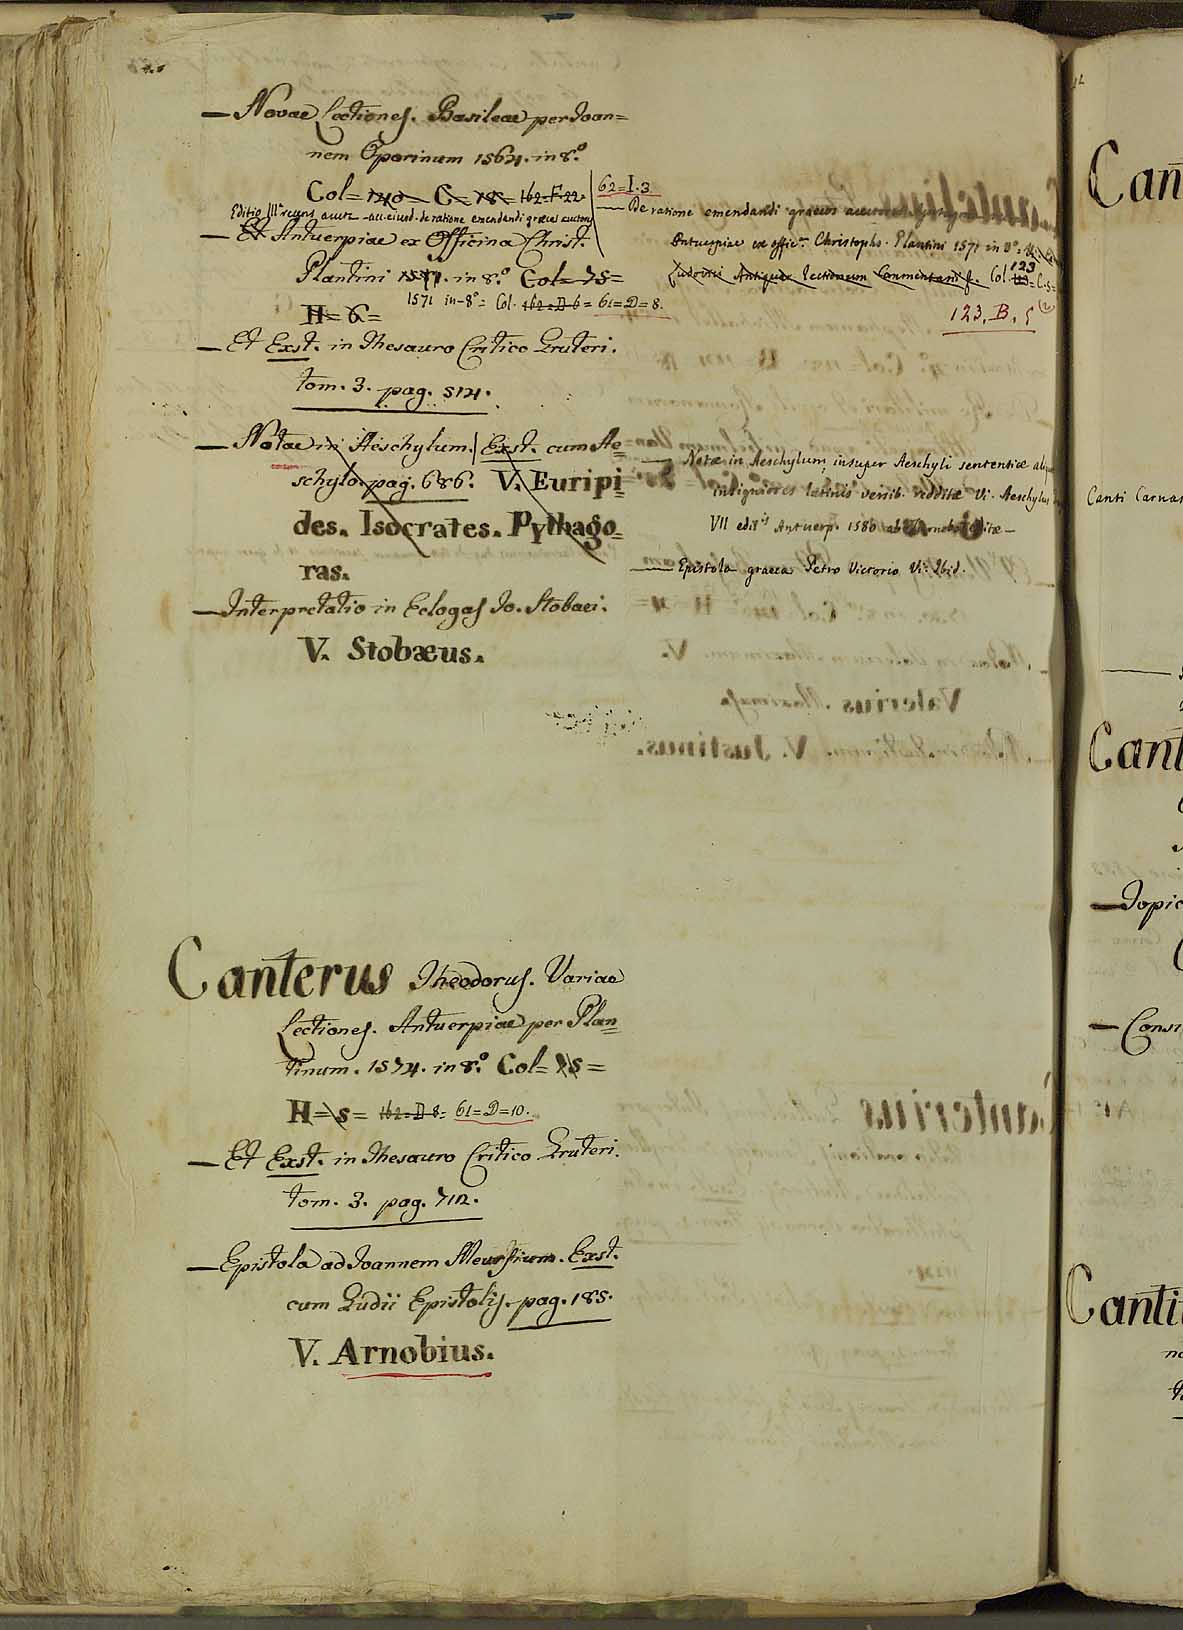 — Novae Lectiones. Basileae per Joan=
nem Oporinum 1564. in 8.º
Col= 140 — C = 18 = 162=F.22. 62=I.3
Editio III recens auct. — acc. eiusd. de ratione emendandi græcos auctores
— Et Antuerpiae ex Officina Christ.
Plantini 1571. in 8.º Col= 75=
1571 in-8º= Col. 162=D 6 = 61=D=8.
H= 6=
— Et Exst. in Thesauro Critico Gruteri.
tom. 3. pag. 514.
— Notae in Aeschylum. Exst. cum Ae=
schylo. pag. 686. V. Euripi=
des. Isocrates. Pythago=
ras.
— Interpretatio in Eclogas Jo. Stobaei.
V. Stobæus.
— De ratione emendandi graecos auctores
Antuerpiae ex offic. Christoph. Plantini 1571 in 8º.
Ludovici Antiquae Lectionum Commentarii Col 123
123. B. 5
— Notæ in Aeschylum, insuper Aeschyli sententiæ
insigniores latinis versib. redditæ Vi. Aeschylus
VII edit. Antuerp. 1580 ab Arnobo editæ —
— Epistola graeca Petro Victorio Vi. Ibid.
Canterus Theodorus. Variae
Lectiones. Antuerpiae per Plan=
tinum. 1574. in 8.º Col= 75 =
H= 5= 162=D 8= 61=D=10.
— Et Exst. in Thesauro Critico Gruteri.
tom. 3. pag. 712.
— Epistola ad Joannem Meursium. Exst.
cum Gudii Epistolis. pag. 185.
V. Arnobius.
Can
Canti Carnas
Cant
— Topic
— Consi
Canti